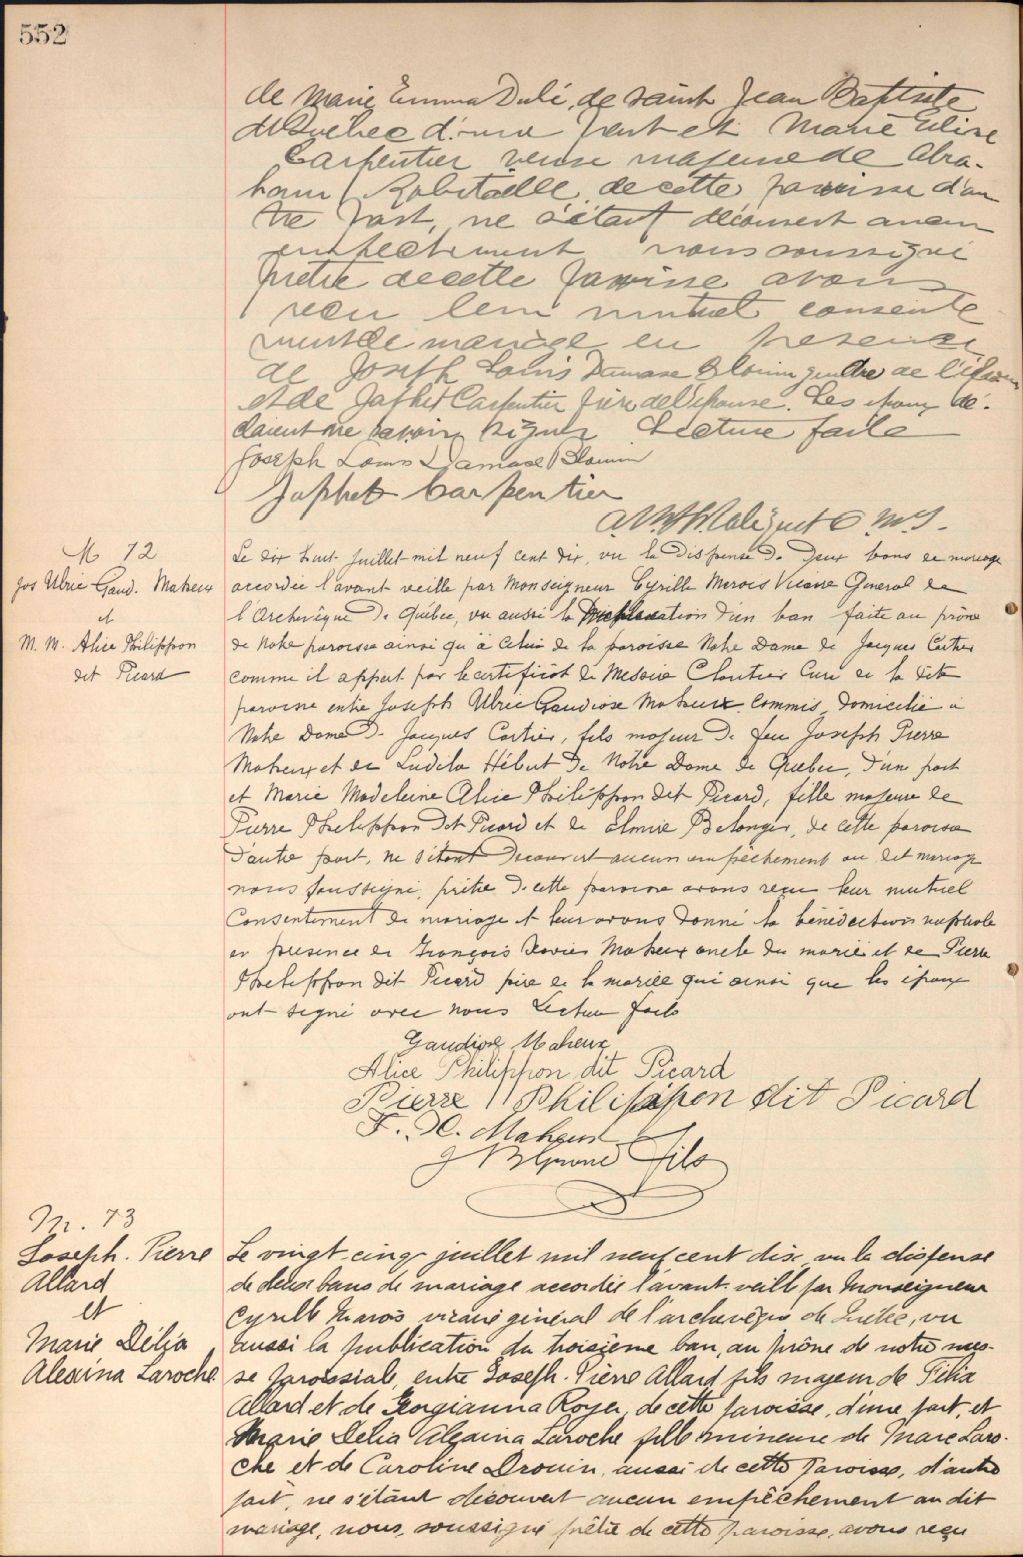 552
de Marie Emma Dubé, de Saint Jean Baptiste
de Québec d'une part et Marie Elise
Carpentier veuve majeure de Abra-
ham Robitaille, de cette paroisse d'au
tre part, ne s'étant découvert aucun
empêchement nous soussigné
prêtre de cette paroisse avons
reçu leur mutuel consente
ment de mariage en présence
de Joseph Louis Damase Blouin gendre de
et de Japhet Carpentier frère de l'épouse. Les époux dé-
clarent ne savoir signer Lecture faite
Joseph Louis Damase Blouin
Japhet Carpentier
O.M.I.
M 72
Jos Ulric Gaud. Maheux
et
M. M. Alice Philippon
dit Picard
Le dix huit Juillet mil neuf cent dix, vu la dispense de deux bans de mariage
accordée l'avant veille par Monseigneur Cyrille Marois Vicaire Général de
l'Archevêque de Québec, vu aussi la publication d'un ban faite au prône
de Notre paroisse ainsi qu'à celui de la paroisse Notre Dame de Jacques Cartier
comme il appert par le certificat de Messire Cloutier Curé de la dite
paroisse entre Joseph Ulric Gaudiose Maheux, Commis, domicilié à
Notre Dame de Jacques Cartier, fils majeur de feu Joseph Pierre
Maheux et de Hébert de Notre Dame de Québec, d'une part
et Marie Madeleine Alice Philippon dit Picard, fille majeure de
Pierre Philippon dit Picard et de Elmire Belanger, de cette paroisse
d'autre part, ne s'étant découvert aucun empêchement au dit mariage
nous soussigné, prêtre de cette paroisse avons reçu leur mutuel
Consentement de mariage et leur avons donné la bénédiction nuptiale
en présence de François Xavier Maheux oncle du marié et de Pierre
Philippon dit Picard père de la mariée qui ainsi que les époux
ont signé avec nous Lecture faite
Gaudiose Maheux
Alice Philippon dit Picard
Pierre Philippon dit Picard
F. X. Maheux
fils
M. 73
Joseph. Pierre
Allard
et
Marie Délia
Alexina Laroche
Le vingt-cinq juillet mil neuf cent dix, vu la dispense
de deux bans de mariage accordée l'avant-veille par Monseigneur
Cyrille Marois vicaire général de l'archevêque de Québec, vu
aussi la publication du troisième ban, au prône de notre mes-
se paroissiale, entre Joseph-Pierre Allard fils majeur de
Allard et de Georgianna Royer, de cette paroisse, d'une part, et
Marie Delia Alexina Laroche fille mineure de Marc Laro-
che et de Caroline Drouin, aussi de cette paroisse, d'autre
part, ne s'étant découvert aucun empêchement au dit
mariage, nous, soussigné prêtre de cette paroisse, avons reçu